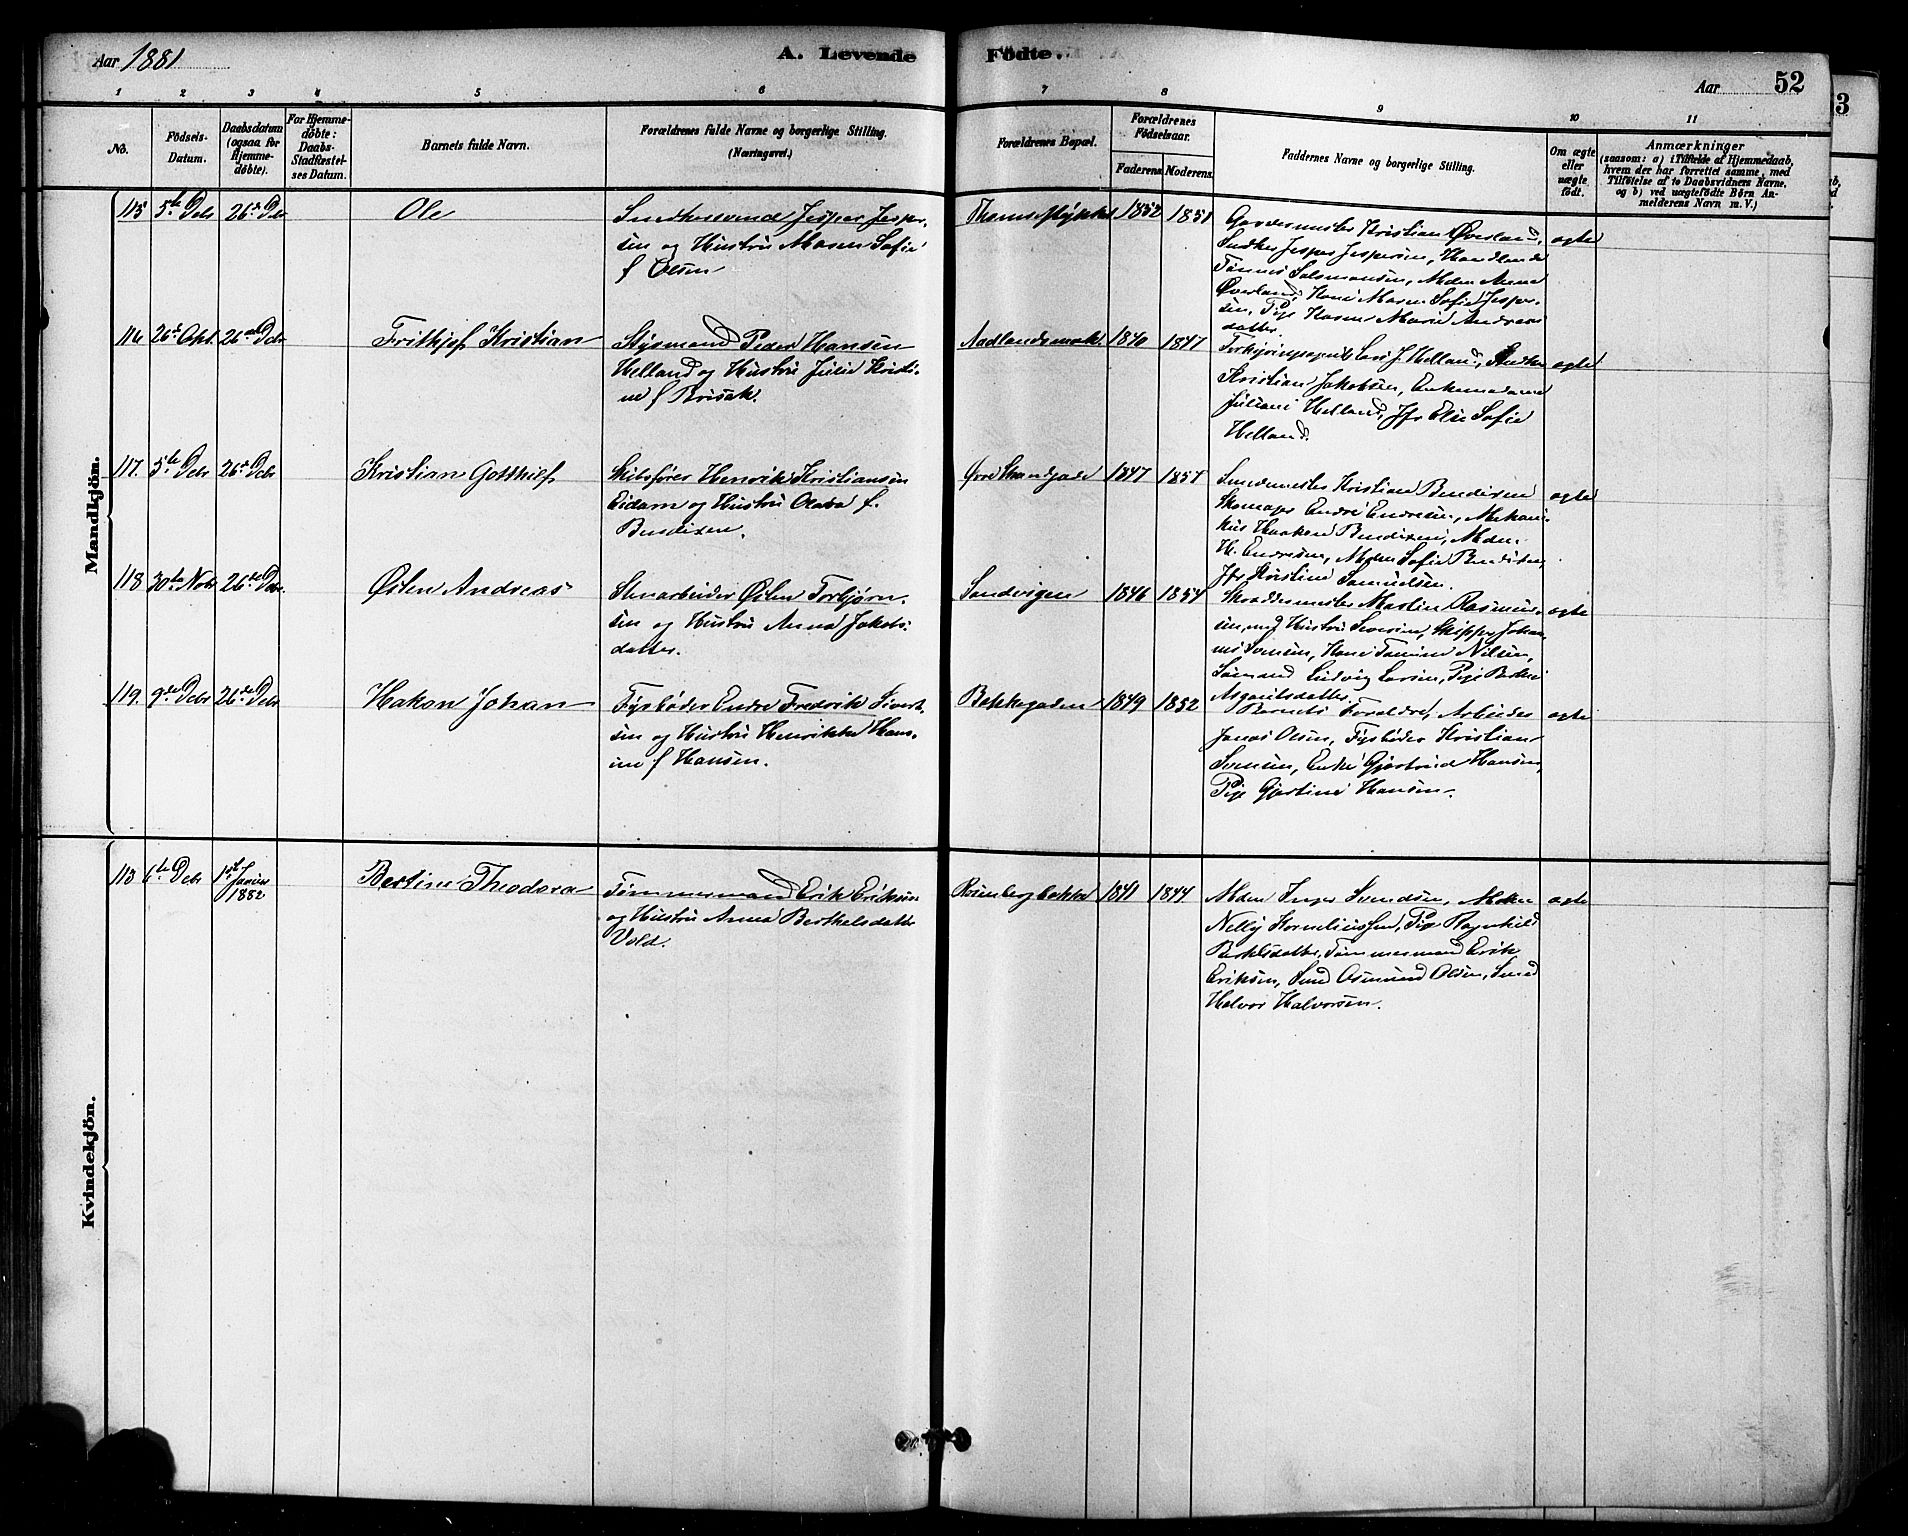 Aar 1881
A. Levende Födte.
Aar
52
1 2 3 4 5 6 7 8 9 10 11
No.
Födsels-
Datum.
Daabsdatum
(ogsaa for
Hjemme-
döbte).
For Hjemme-
döbte:
Daabs-
Stadfæstel-
ses Datum.
Barnets fulde Navn.
Forældrenes fulde Navne og borgerlige Stilling.
(Næringsvei.)
Forældrenes Bopæl.
Forældrenes
Födselsaar.
Faderens. Moderens.
Faddernes Navne og borgerlige Stilling.
Om ægte
eller
uægte
födt.
Anmærkninger
(saasom: a) i Tilfælde af Hjemmedaab,
hvem der har forrettet samme, med
Tilföielse af to Daabsvidners Navne,
og b) ved uægtefödte Börn An-
melderens Navn m. V.)
Mandkjön.
115 5te Debr 26de Debr
Ole
Snedkersvend Jesper Jesper-
sen og Hustru Maren Sofie
f Olsen
1852 1851
Kristian Øverland,
Snedker Jesper Jespersen,
Tønnes Salomonsen, Mdm Anna
Øverland, Kone Maren Sofie Jesper-
sen, Pige Maren Marie Andreas-
datter.
ægte
116 26de 26de Debr
Frithjof Kristian
Styrmand Peder Hansen
Helland og Hustru Julie Kristi-
ne f
1840 1847
Lars J. Helland, Snedker
Kristian Jakobsen, Enkemadame
Juliane Helland, Jfr Elie Sofie
Helland.
ægte
117. 5te Debr 26de Debr
Kristian Gotthilf
Skibsfører Henrik Kristiansen
og Hustru f.
Bendixen.
Øvre Strandgade
1847 1857
Kristian Bendixen
Skomager Endre Endresen, Mekani-
kus Haaken Bendixen, Mdm.
H. Endresen, Mdm Sofie Bendixen,
Jfr Kristine Samuelsen.
ægte
118 30te Novbr 26de Debr.
Øslen Andreas
Stenarbeider Øslen Torbjørn-
sen og Hustru Anna Jakobs-
datter.
Sandvigen
1846 1854
Skræddermester Martin Rasmus-
sen, med Hustru Severine, Skipper Johan-
nes Svensen, Kone Tomine Nilsen,
Sømand Ludvig Larsen, Pige
Asgautsdatter
ægte
119. 9de Debr 26de Debr
Hakon Johan
Fyrbøder Endre Fredrik Sivert-
sen og Hustru Henrikke Han-
ine f Hansen.
Bakkegaden
1849 1852
Barnets Forældre, Arbeider
Jonas Olsen, Fyrbøder Kristian
Svensen, Enke Gjertrud Hansen,
Pige Gjertine Hansen.
ægte
Kvindekjön.
113 6te Debr 1ste Januar
1882
Bertine Theodora
Tømmermand Erik Eriksen
og Hustru Anna Berthelsdatter
Vold.
Rosenbergbakke
1841 1844
Mdm Inger Svendsen, Mdm
Nelly Korneliussen, Pige Ragnhild
Bertelsdatter, Tømmermand Erik
Eriksen, Smed Osmund Olsen, Smed
Halvor Halvorsen.
ægte